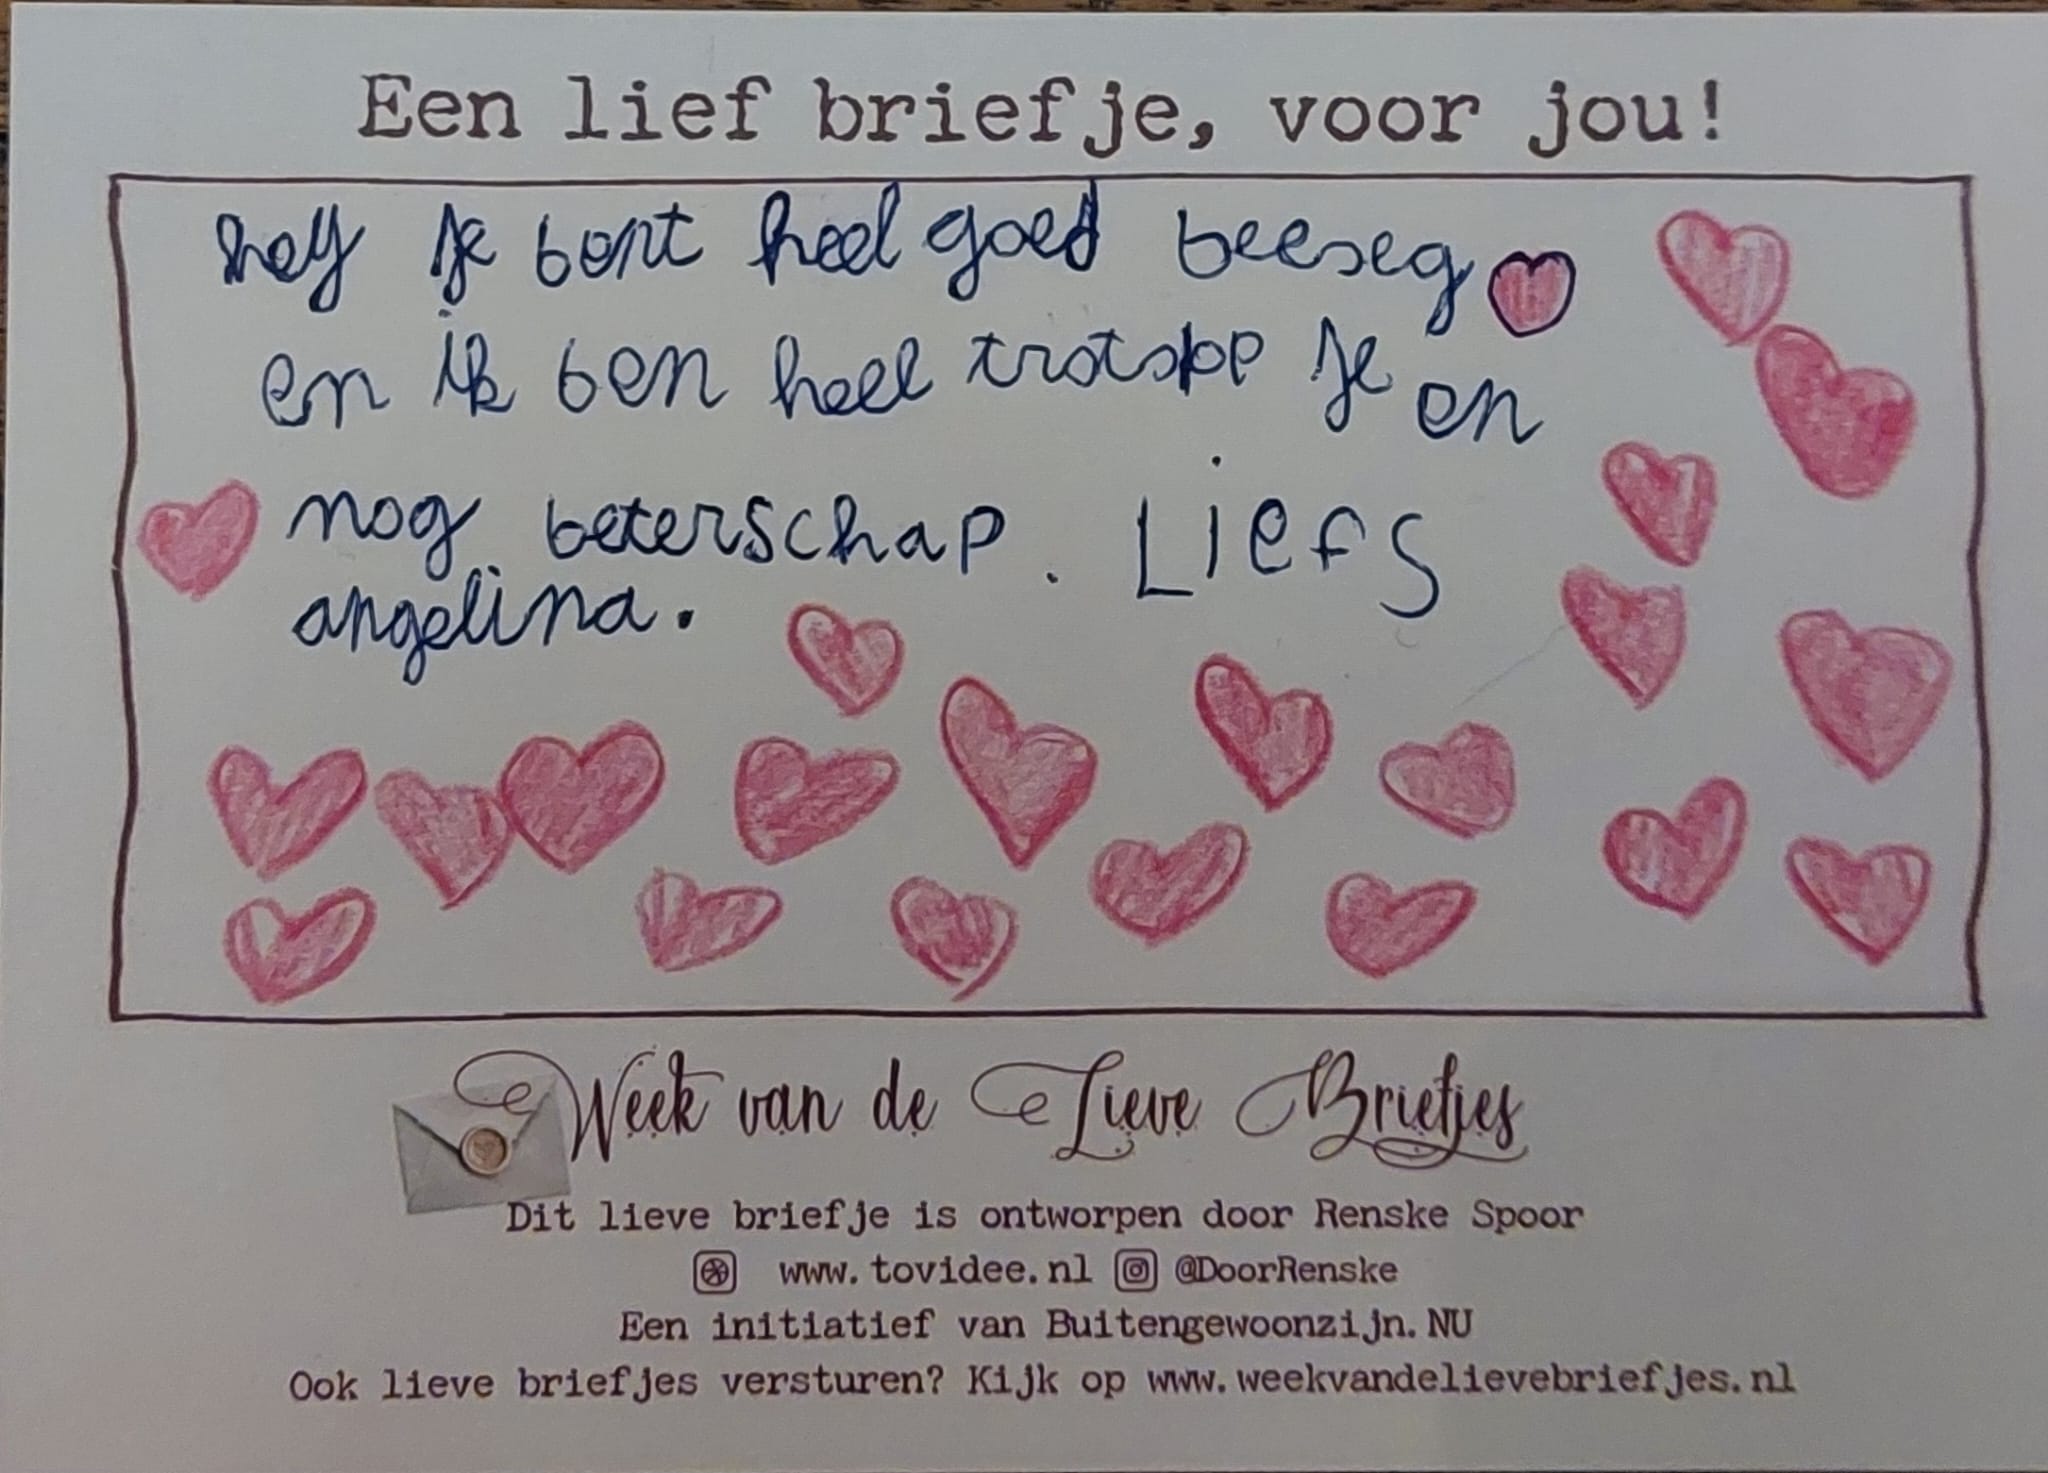 Een lief briefje, voor jou!
hey je bent heel goed beeseg
en ik ben heel trotsop je en
nog beterschap. Liefs
angelina.
Week van de Lieve Briefjes
Dit lieve briefje is ontworpen door Renske Spoor
www.tovidee.nl @DoorRenske
Een initiatief van Buitengewoonzijn.NU
Ook lieve briefjes versturen? Kijk op www.weekvandelievebriefjes.nl